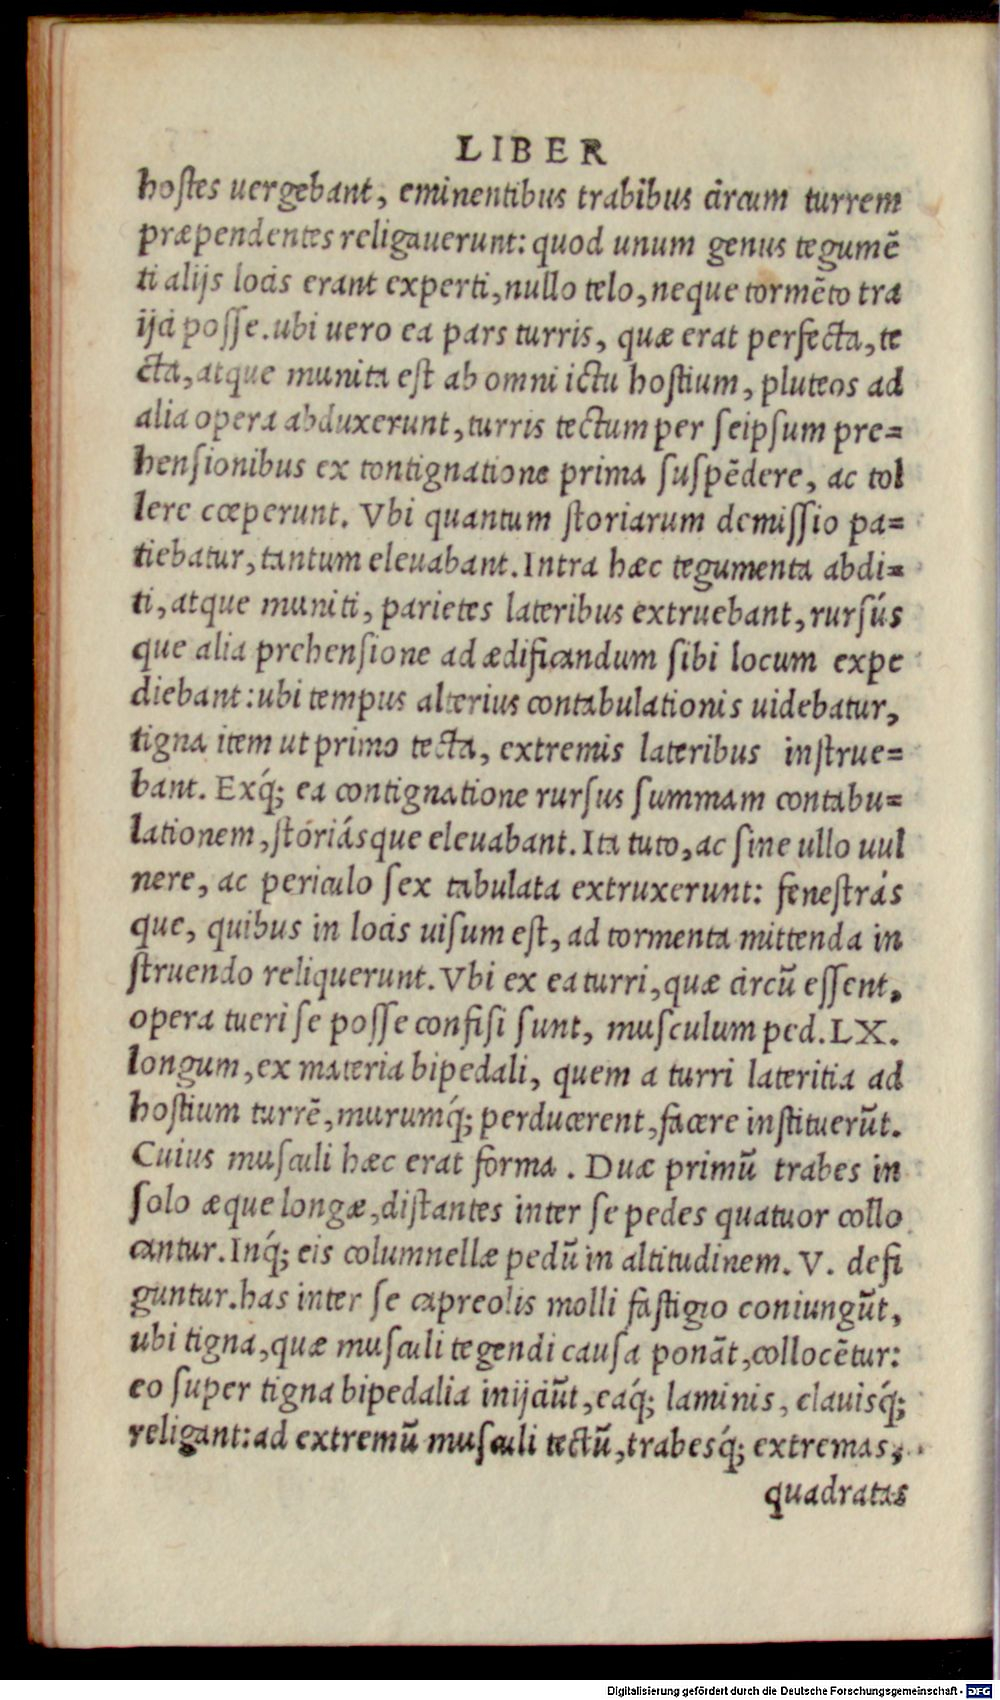 LIBER
hoſtes uergebant, eminentibus trabibus circum turrem
præpendentes religauerunt: quod unum genus tegumē
ti alijs locis erant experti, nullo telo, neque tormēto tra
ijci poſſe. ubi uero ea pars turris, quæ erat perfecta, te
cta, atque munita eſt ab omni ictu hoſtium, pluteos ad
alia opera abduxerunt, turris tectum per ſeipſum pre=
henſionibus ex contignatione prima ſuſpēdere, ac tol
lere cœperunt. Vbi quantum ſtoriarum demiſſio pa=
tiebatur, tantum eleuabant. Intra hæc tegumenta abdi=
ti, atque muniti, parietes lateribus extruebant, rurſús
que alia prehenſione ad ædificandum ſibi locum expe
diebant: ubi tempus alterius contabulationis uidebatur,
tigna item ut primo tecta, extremis lateribus inſtrue=
bant. Exq́; ea contignatione rurſus ſummam contabu=
lationem, ſtoriásque eleuabant. Ita tuto, ac ſine ullo uul
nere, ac periculo ſex tabulata extruxerunt: feneſtrás
que, quibus in locis uiſum eſt, ad tormenta mittenda in
ſtruendo reliquerunt. Vbi ex ea turri, quæ circū eſſent,
opera tueri ſe poſſe confiſi ſunt, muſculum ped. LX.
longum, ex materia bipedali, quem a turri lateritia ad
hoſtium turrē, murumq́; perducerent, facere inſtituerūt.
Cuius muſculi hæc erat forma. Duæ primū trabes in
ſolo æque longæ, diſtantes inter ſe pedes quatuor collo
cantur. Inq́; eis columnellæ pedū in altitudinem. V. defi
guntur. has inter ſe capreolis molli faſtigio coniungūt,
ubi tigna, quæ muſculi tegendi cauſa ponāt, collocētur:
eo ſuper tigna bipedalia inijciūt, eaq́; laminis, clauisq́;
religant: ad extremū muſculi tectū, trabesq́; extremas,
quadratas
Digitalisierung gefördert durch die Deutsche Forschungsgemeinschaft - DFG